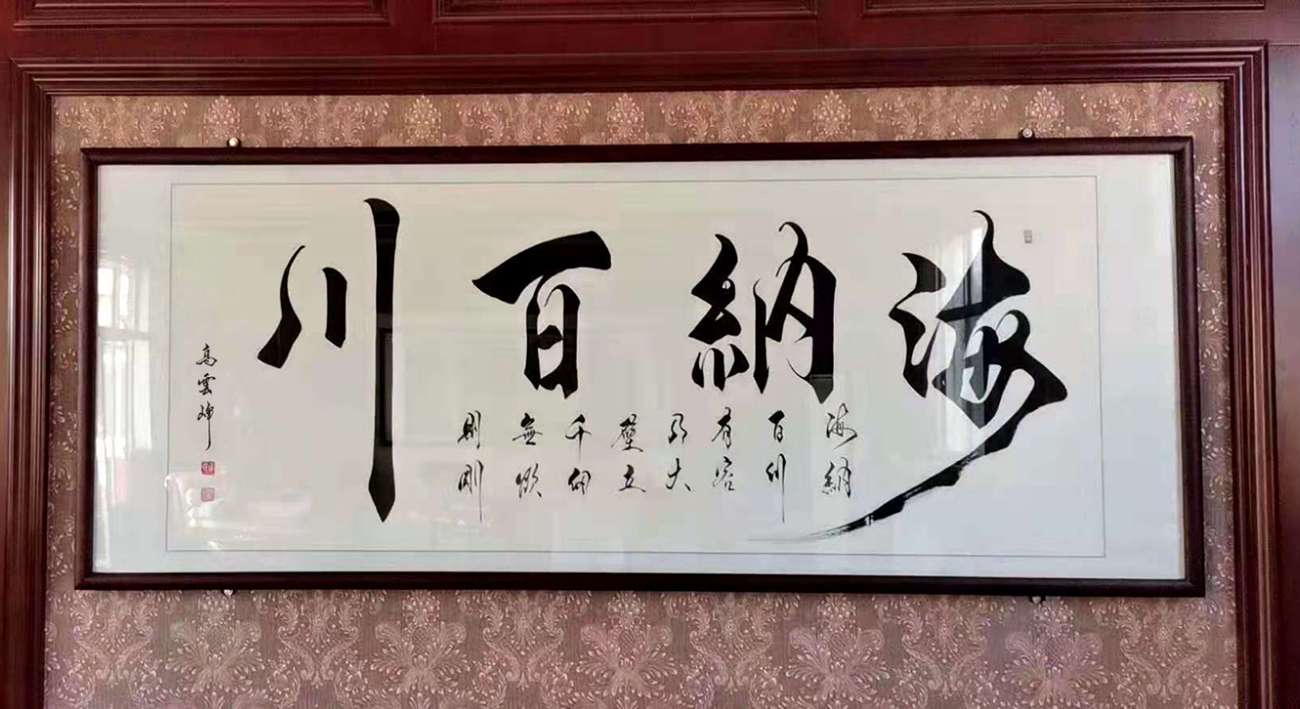 海納百川
海納
百川
有容
乃大
壁立
千仞
無欲
則剛
高雲峰